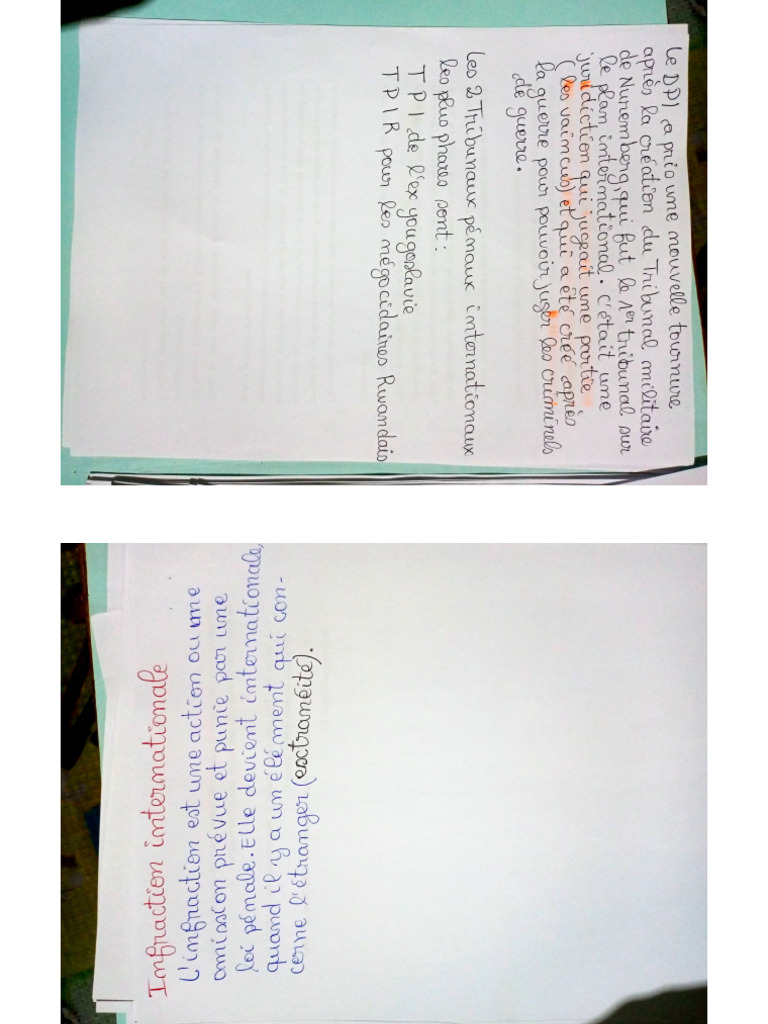 Le DPI a pris une nouvelle tournure
après la création du Tribunal militaire
de Nuremberg, qui fut le 1er tribunal sur
le plan international. C'était une
juridiction qui jugeait une partie
(les vaincus) et qui a été créé après
la guerre pour pouvoir juger les criminels
de guerre.
Les 2 Tribunaux pénaux internationaux
les plus phares sont :
TPI de l'ex yougoslavie
TPIR pour les négocidaires Rwandais
Infraction internationale
L'infraction est une action ou une
omission prévue et punie par une
loi pénale. Elle devient internationale,
quand il y a un élément qui con-
cerne l'étranger (extranéité).